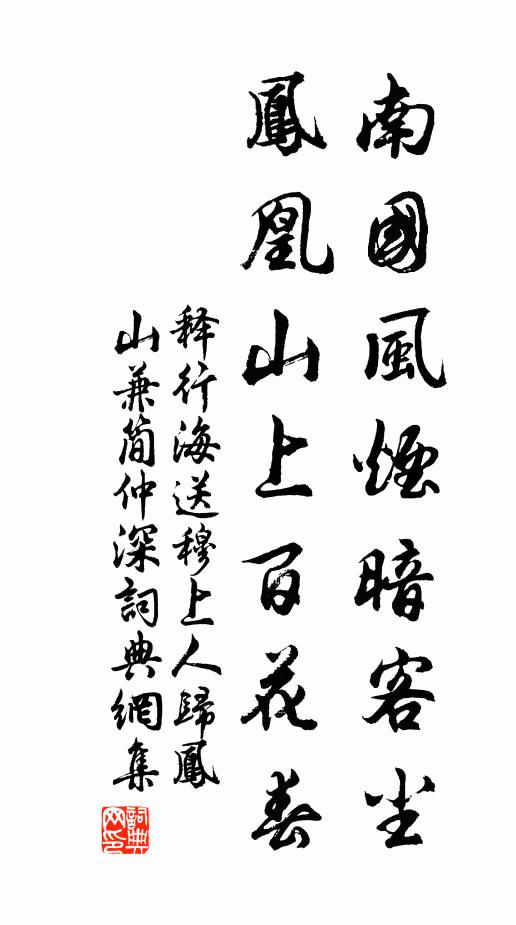 南國風煙暗客尘
鳳凰山上百花春
释行海送穆上人歸鳳
山兼简仲深詞典網集
詞典网印